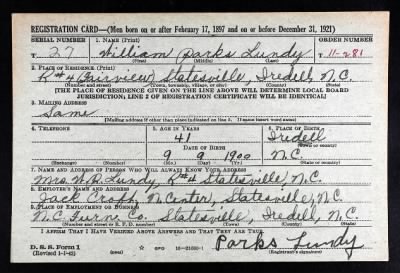 REGISTRATION CARD—(Men born on or after February 17, 1897 and on or before December 31, 1921)
SERIAL NUMBER 1. NAME (Print) ORDER NUMBER
T 27 William Parks Lundy T 11-281
(First) (Middle) (Last)
2. PLACE OF RESIDENCE (Print)
R#4 (Fairview) Statesville, Iredell, N.C.
(Number and street) (Town, township, village, or city) (County) (State)
[THE PLACE OF RESIDENCE GIVEN ON THE LINE ABOVE WILL DETERMINE LOCAL BOARD
JURISDICTION; LINE 2 OF REGISTRATION CERTIFICATE WILL BE IDENTICAL]
3. MAILING ADDRESS
Same
[Mailing address if other than place indicated on line 2. If same insert word same]
4. TELEPHONE 5. AGE IN YEARS 6. PLACE OF BIRTH
41 Iredell
DATE OF BIRTH (Town or county)
9 9 1900 N.C.
(Exchange) (Number) (Mo.) (Day) (Yr.) (State or country)
7. NAME AND ADDRESS OF PERSON WHO WILL ALWAYS KNOW YOUR ADDRESS
Mrs. W.P. Lundy R#4 Statesville, N.C.
8. EMPLOYER'S NAME AND ADDRESS
N. Center, Statesville, N.C.
9. PLACE OF EMPLOYMENT OR BUSINESS
N.C. Furn. Co. Statesville, Iredell, N.C.
(Number and street or R. F. D. number) (Town) (County) (State)
I AFFIRM THAT I HAVE VERIFIED ABOVE ANSWERS AND THAT THEY ARE TRUE.
D. S. S. Form 1
(Revised 1-1-42) GPO 16—21630-1
Parks Lundy
(Registrant's signature)